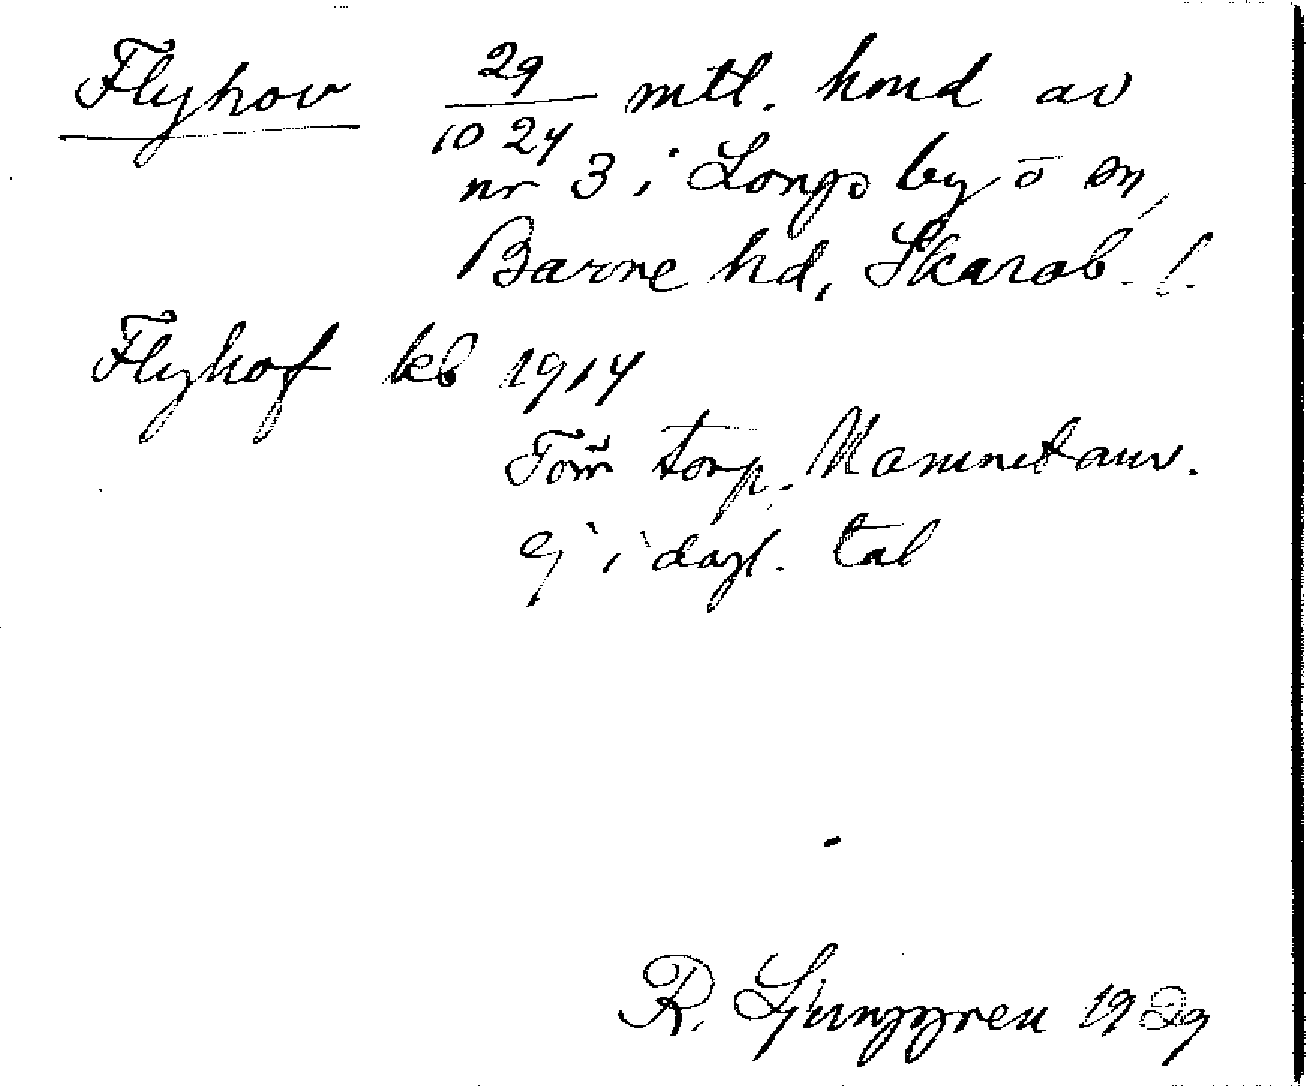 Flyhov 29/1024 mtl. hmd av
nr 3 i Longs by o sn,
Barne hd, Skarab. l.
Flyhof kb 1914
Förr torp. Namnet anv.
Ej i dagl. tal
R. Ljunggren 1929